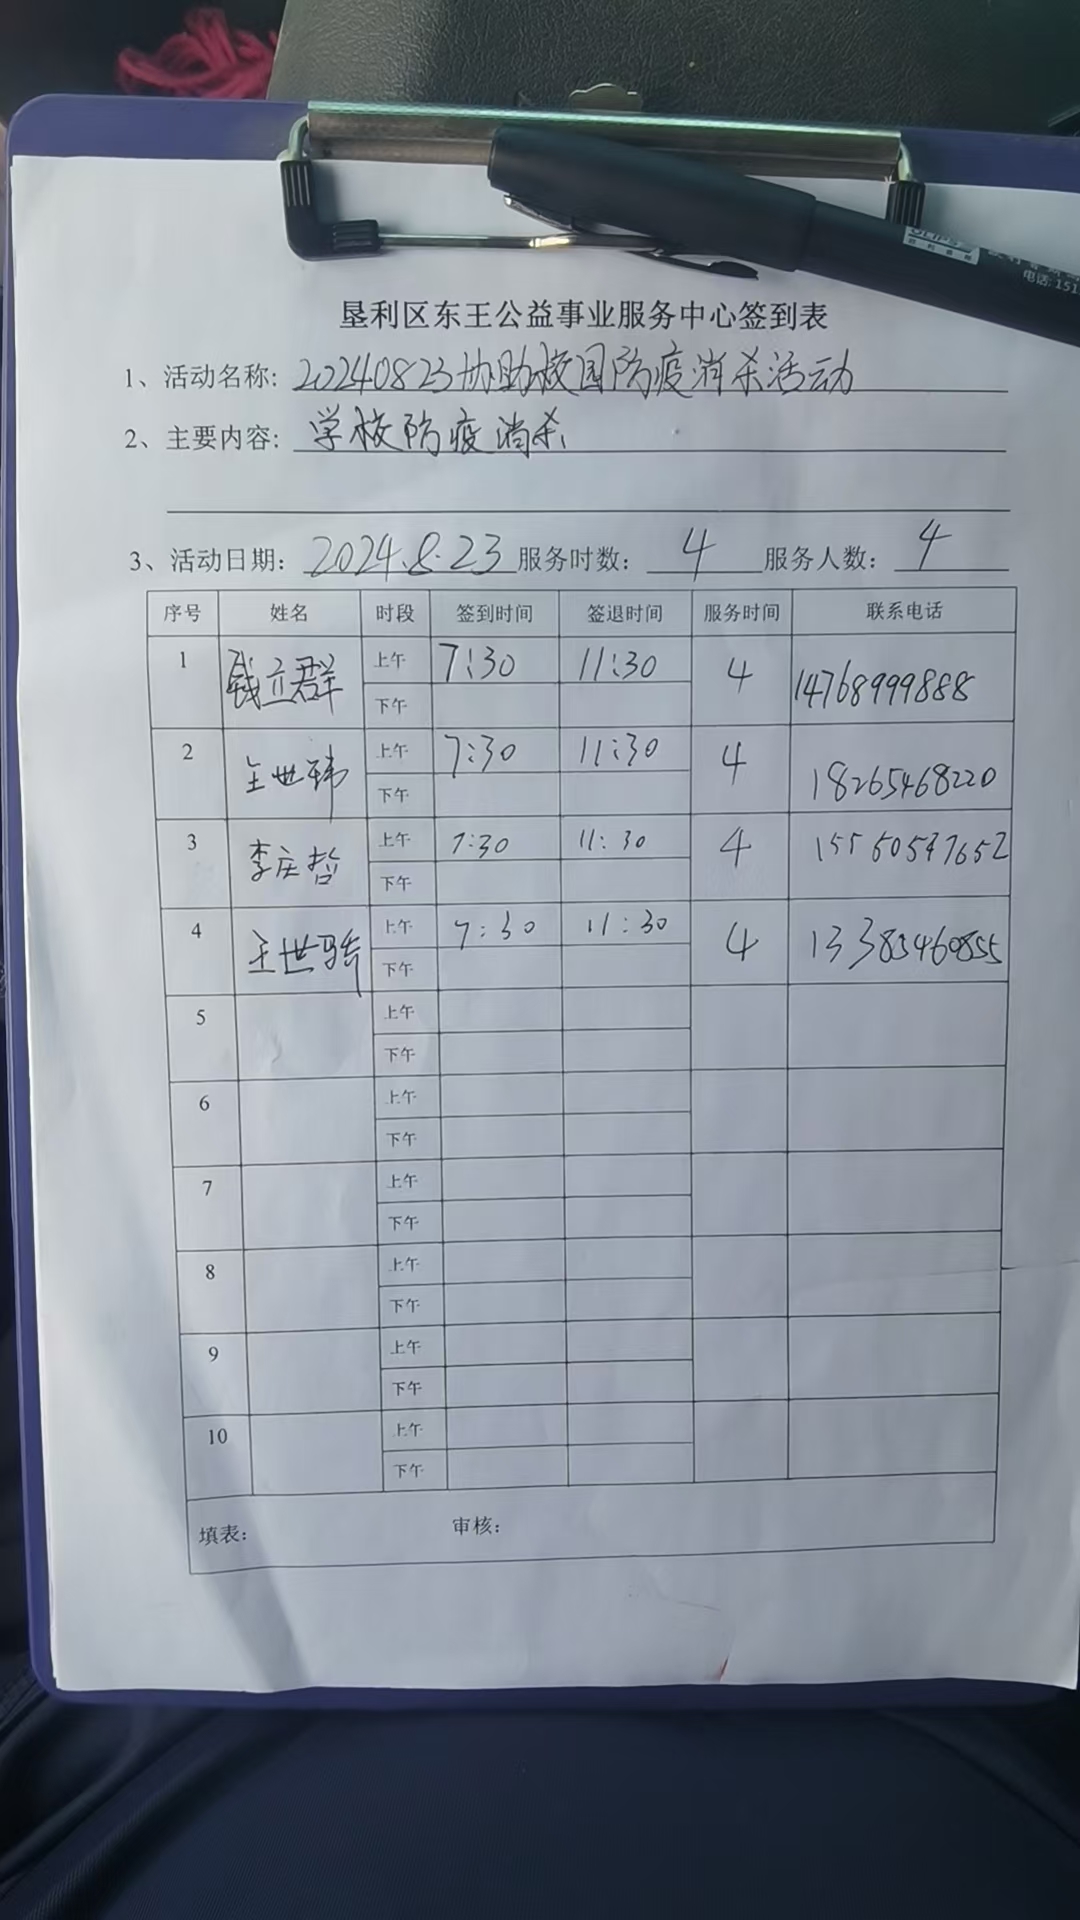 垦利区东王公益事业服务中心签到表
1、活动名称: 20240823协助校园防疫消杀活动
2、主要内容: 学校防疫消杀
3、活动日期: 2024.8.23 服务时数: 4 服务人数: 4
序号 姓名 时段 签到时间 签退时间 服务时间 联系电话
1 钱立群 上午 7:30 11:30 4 14768999888
下午
2 王世韩 上午 7:30 11:30 4 18265468220
下午
3 李庆哲 上午 7:30 11:30 4 15560547652
下午
4 王世骑 上午 7:30 11:30 4 13385460855
下午
5 上午
下午
6 上午
下午
7 上午
下午
8 上午
下午
9 上午
下午
10 上午
下午
填表: 审核:
电话: 151